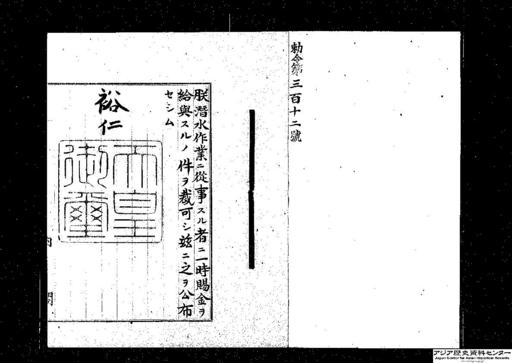 勅令第三百十二號
朕潜水作業ニ從事スル者ニ一時賜金ヲ
給與スルノ件ヲ裁可シ茲ニ之ヲ公布
セシム
裕仁
天皇
御璽
内閣
アジア歴史資料センター
Japan Center for Asian Historical Records